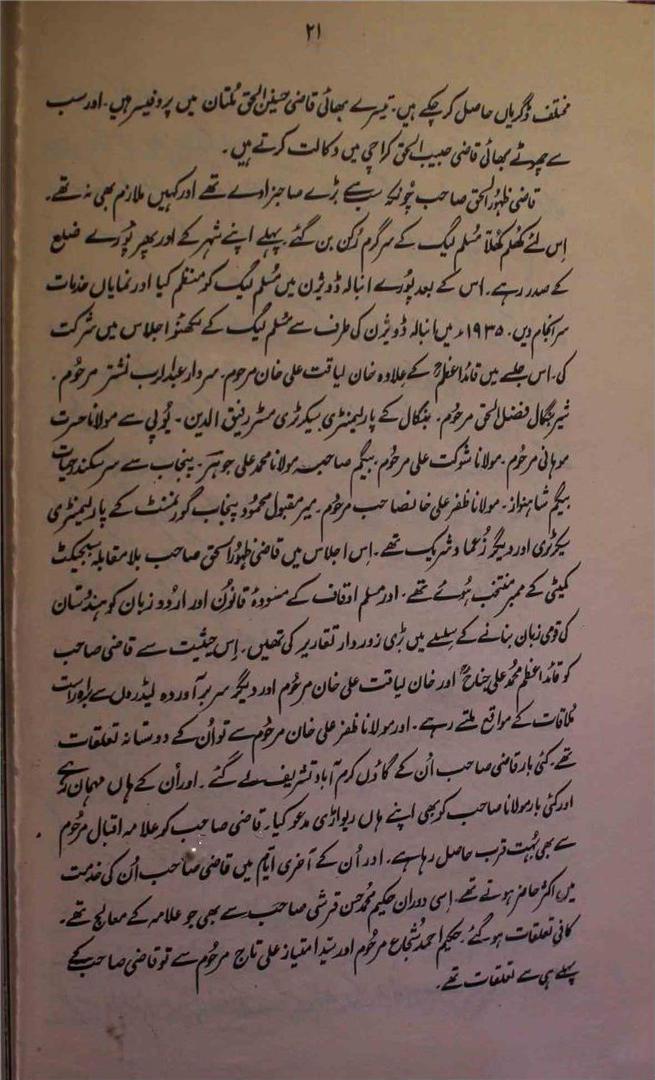 ۲۱
مختلف ڈگریاں حاصل کر چکے ہیں۔ تیسرے بھائی قاضی حنین الحق ملتان میں پروفیسر ہیں۔ اور سب
سے چھوٹے بھائی قاضی حبیب الحق کراچی میں وکالت کرتے ہیں۔
قاضی ظہورُ الحق صاحب چونکہ سب سے بڑے صاحبزادے تھے اور کہیں ملازم بھی نہ تھے۔
اِس لئے کھُلم کھُلّا مُسلم لیگ کے سرگرم رُکن بن گئے پہلے اپنے شہر کے اور پھر پُورے ضلع
کے صدر رہے۔ اس کے بعد پُورے انبالہ ڈویژن میں مُسلم لیگ کو منظم کیا اور نمایاں خدمات
سرانجام دیں۔ ۱۹۳۵ء میں انبالہ ڈویژن کی طرف سے مُسلم لیگ کے لکھنؤ اجلاس میں شرکت
کی۔ اس جلسے میں قائداعظمؒ کے علاوہ خان لیاقت علی خان مرحوم۔ سردار عبدالرب نشتر مرحوم۔
شیر بنگال فضل الحق مرحُوم۔ بنگال کے پارلیمنٹری سیکرٹری مسٹر رفیق الدین۔ یُوپی سے مولانا حسرت
موہانی مرحُوم۔ مولانا شوکت علی مرحُوم۔ بیگم صاحبہ مولانا محمد علی جوہر۔ پنجاب سے سر سکندر حیات
بیگم شاہنواز۔ مولانا ظفر علی خانصاحب مرحُوم۔ میر مقبول محمود پنجاب گورنمنٹ کے پارلیمنٹری
سیکرٹری اور دیگر زُعماء شریک تھے۔ اِس اجلاس میں قاضی ظہورُ الحق صاحب بلا مقابلہ سبجیکٹ
کمیٹی کے ممبر منتخب ہُوئے تھے۔ اور مسلم اوقاف کے مسودۂ قانُون اور اردُو زبان کو ہندُستان
کی قومی زبان بنانے کے سلسلے میں بڑی زور دار تقاریر کی تھیں۔ اِس حیثیت سے قاضی صاحب
کو قائد اعظم محمدُ علی جناحؒ اور خان لیاقت علی خان مرحُوم اور دیگر سربرآوردہ لیڈروں سے براہِ راست
ملاقات کے مواقع ملتے رہے۔ اور مولانا ظفر علی خان مرحُوم سے تو اُن کے دوستانہ تعلقات
تھے۔ کئی بار قاضی صاحب اُن کے گاؤں کرم آباد تشریف لے گئے۔ اور اُن کے ہاں مہمان رہے
اور کئی بار مولانا صاحب کو بھی اپنے ہاں ریواڑی مدعو کیا۔ قاضی صاحب کو علامہ اقبال مرحُوم
سے بھی بہُت قرب حاصل رہا ہے۔ اور اُن کے آخری ایّام میں قاضی صاحب اُن کی خدمت
میں اکثر حاضر ہوتے تھے۔ اِسی دوران حکیم محمدُ حسن قرشی صاحب سے بھی جو علامہ کے معالج تھے۔
کافی تعلقات ہو گئے۔ حکیم احمدُ شُجاع مرحُوم اور سیّد امتیاز علی تاج مرحُوم سے تو قاضی صاحب کے
پہلے ہی سے تعلقات تھے۔